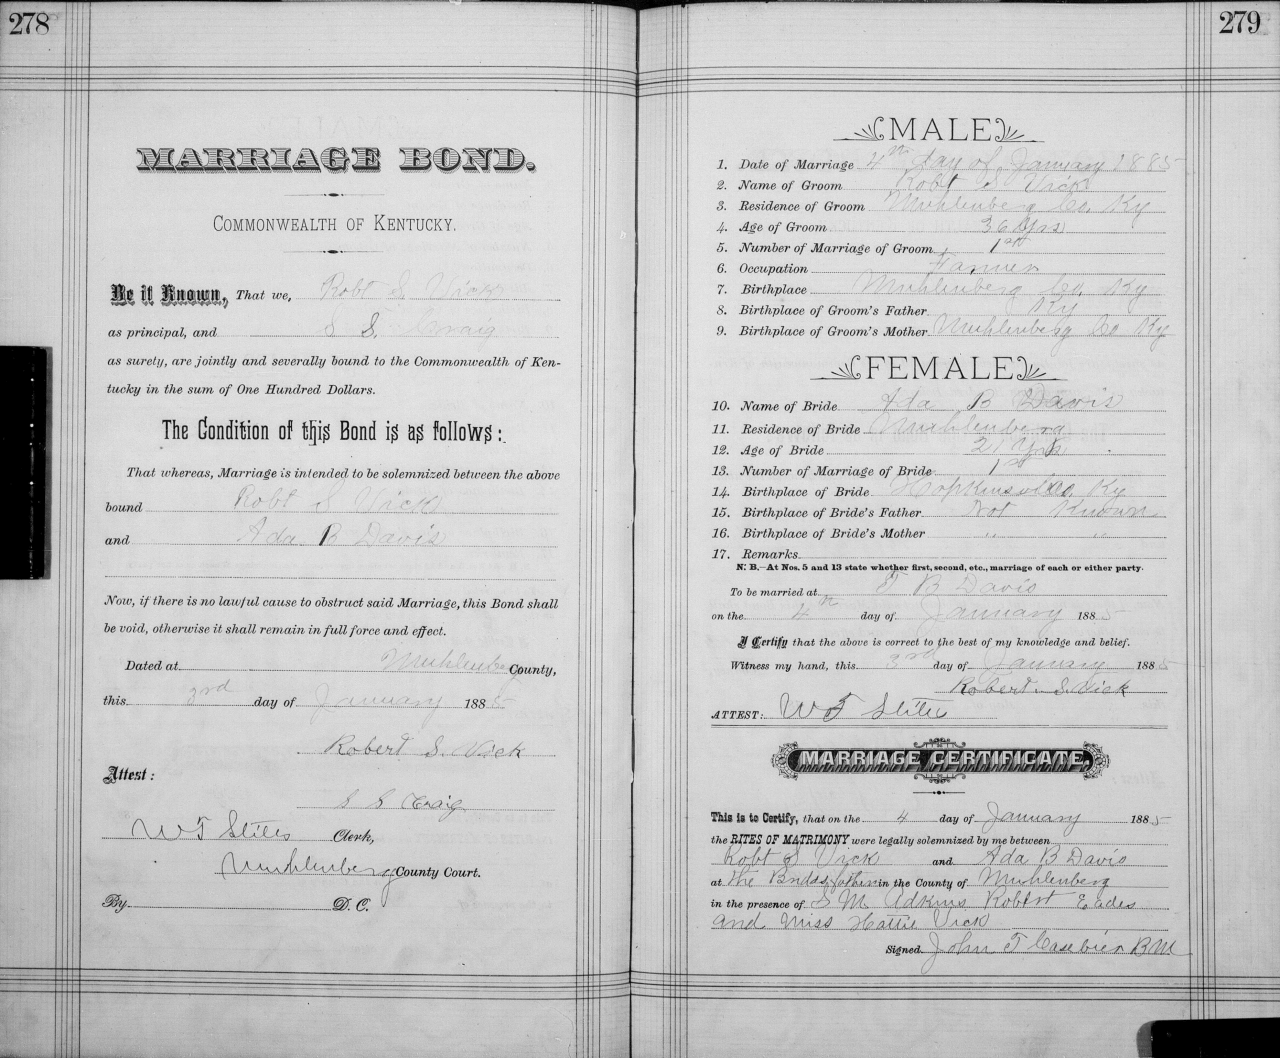 278
MARRIAGE BOND.
COMMONWEALTH OF KENTUCKY.
Be it Known, That we, Robt S Vick
as principal, and S S. Craig
as surety, are jointly and severally bound to the Commonwealth of Ken-
tucky in the sum of One Hundred Dollars.
The Condition of this Bond is as follows:
That whereas, Marriage is intended to be solemnized between the above
bound Robt S Vick
and Ada B Davis
Now, if there is no lawful cause to obstruct said Marriage, this Bond shall
be void, otherwise it shall remain in full force and effect.
Dated at Muhlenberg County,
this 3rd day of January 1885
Robert S. Vick
Attest:
S S Craig
W T Stiles Clerk,
Muhlenberg County Court.
By D. C.
279
MALE
1. Date of Marriage 4th day of January 1885
2. Name of Groom Robt S Vick
3. Residence of Groom Muhlenberg Co. Ky
4. Age of Groom 36 Yrs
5. Number of Marriage of Groom 1st
6. Occupation Farmer
7. Birthplace Muhlenberg Co. Ky
8. Birthplace of Groom's Father Ky
9. Birthplace of Groom's Mother Muhlenberg Co Ky
FEMALE
10. Name of Bride Ada B Davis
11. Residence of Bride Muhlenberg
12. Age of Bride 21 Yrs
13. Number of Marriage of Bride 1st
14. Birthplace of Bride Ky
15. Birthplace of Bride's Father Not Known
16. Birthplace of Bride's Mother " "
17. Remarks
N. B.—At Nos. 5 and 13 state whether first, second, etc., marriage of each or either party.
To be married at B Davis
on the 4th day of January 1885
I Certify that the above is correct to the best of my knowledge and belief.
Witness my hand, this 3rd day of January 1885
Robert S. Vick
ATTEST: W T Stiles
MARRIAGE CERTIFICATE.
This is to Certify, that on the 4 day of January 1885
the RITES OF MATRIMONY were legally solemnized by me between
Robt S Vick and Ada B Davis
at the Brides fathers in the County of Muhlenberg
in the presence of S M Adkins Robert Eades
and Miss Hattie Vick
Signed John T Casebier B M